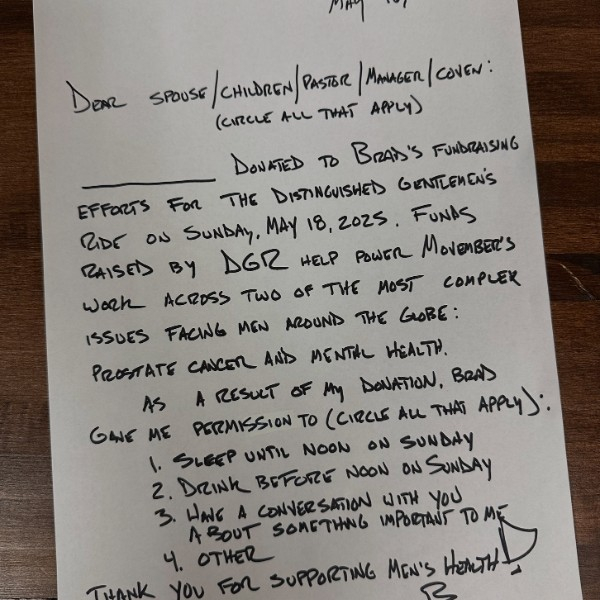 MAY
DEAR SPOUSE/CHILDREN/PASTOR/MANAGER/COVEN:
(CIRCLE ALL THAT APPLY)
DONATED TO BRAD'S FUNDRAISING
EFFORTS FOR THE DISTINGUISHED GENTLEMEN'S
RIDE ON SUNDAY, MAY 18, 2025. FUNDS
RAISED BY DGR HELP POWER MOVEMBER'S
WORK ACROSS TWO OF THE MOST COMPLEX
ISSUES FACING MEN AROUND THE GLOBE:
PROSTATE CANCER AND MENTAL HEALTH.
AS A RESULT OF MY DONATION, BRAD
GAVE ME PERMISSION TO (CIRCLE ALL THAT APPLY):
1. SLEEP UNTIL NOON ON SUNDAY
2. DRINK BEFORE NOON ON SUNDAY
3. HAVE A CONVERSATION WITH YOU
ABOUT SOMETHING IMPORTANT TO ME
4. OTHER
THANK YOU FOR SUPPORTING MEN'S HEALTH
B